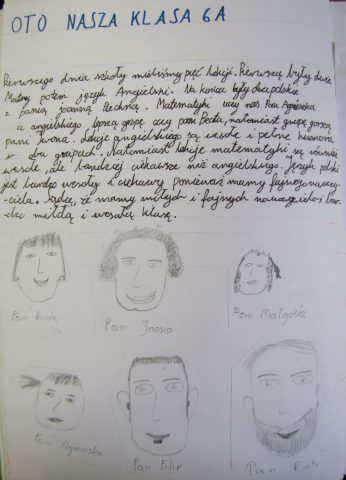 OTO NASZA KLASA 6A
Pierwszego dnia szkoły mieliśmy pięć lekcji. Pierwszą były dwie
Matmy potem język Angielski. Na końcu były dwa polskie
z panią Joanną Pechną. Matematyki uczy nas Pani Agnieszka
a angielskiego lepszą grupę uczy pani Beata, natomiast grupę gorszą
pani Iwona. Lekcje angielskiego są wesołe i pełne
w obu grupach. Natomiast lekcje matematyki są również
wesołe, ale bardziej ciekawsze niż angielskiego. Język polski
jest bardzo wesoły i ciekawy ponieważ mamy fajnego nauczy-
ciela. Sądzę, że mamy miłych i fajnych nauczycieli i bar-
dzo miłą i wesołą klasę.
Pani Joasia
Pani Małgosia
Pani Agnieszka
Pan Filip
Pan Piotr